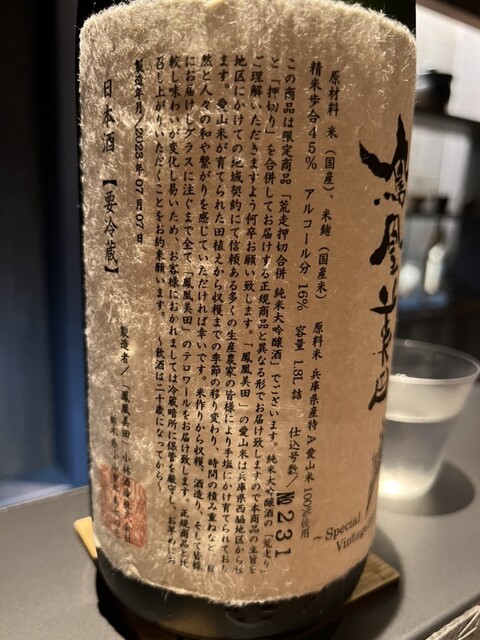 鳳凰美田
~Special
Vintage
原材料 米（国産）、米麹（国産米） 原料米 兵庫県産特A愛山米 100%使用
精米歩合45% アルコール分 16% 容量 1.8L詰 仕込号数/№231
この商品は限定商品「荒走押切合併 純米大吟醸酒」でございます。純米大吟醸酒の「荒走り」
と「押切り」を合併してお届けする正規商品と異なる形でお届け致しますので本商品の主旨を
ご理解いただきますよう何卒お願い致します。「鳳凰美田」の愛山米は兵庫県西脇地区から
地区にかけての地域契約にて信頼ある多くの生産農家の皆様により手塩にかけ育てられており
ます。愛山米が育てられた田植えから収穫までの季節の移り変わり、時間の積み重ねなど、自
然と人々の和や繋がりを感じていただければ幸いです。米作りから収穫、酒造り、そして皆様
にお届けしグラスに注ぐまで全て「鳳凰美田」のテロワールをお届け致します。正規商品と比
較し味わいが変化し易いため、お客様におかれましては冷蔵暗所に保管を厳守し、お早めにお
召し上がりいただくことをお約束願います。 ~飲酒は二十歳になってから~
製造年月/2023年07月07日
製造者/「鳳凰美田」小林酒造株式会社
日本酒 【要冷蔵】